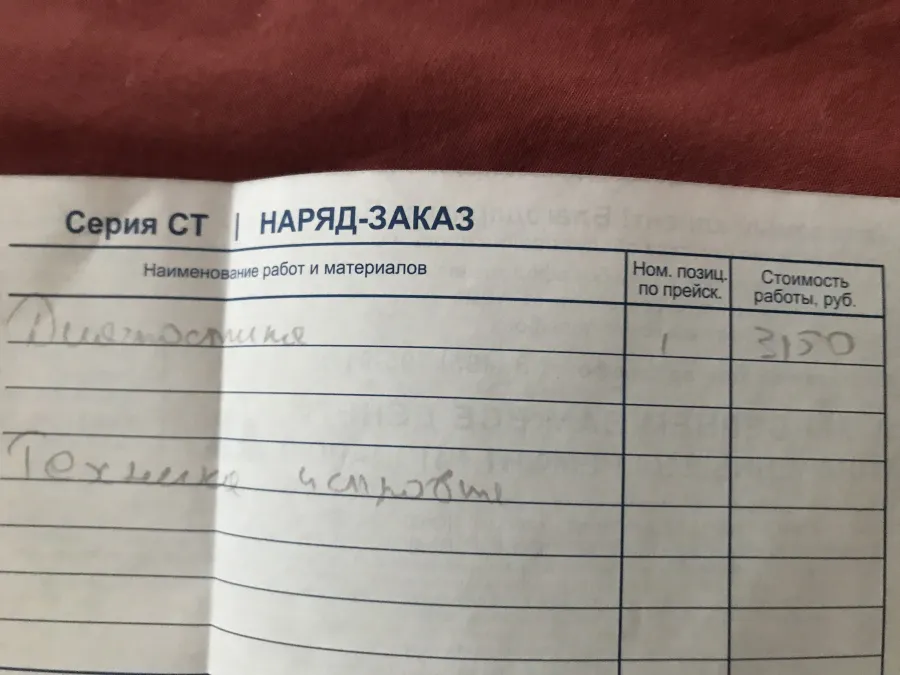 Серия СТ | НАРЯД-ЗАКАЗ
Наименование работ и материалов
Ном. позиц. по прейск.
Стоимость работы, руб.
Диагностика 1 3150
Техника исправна